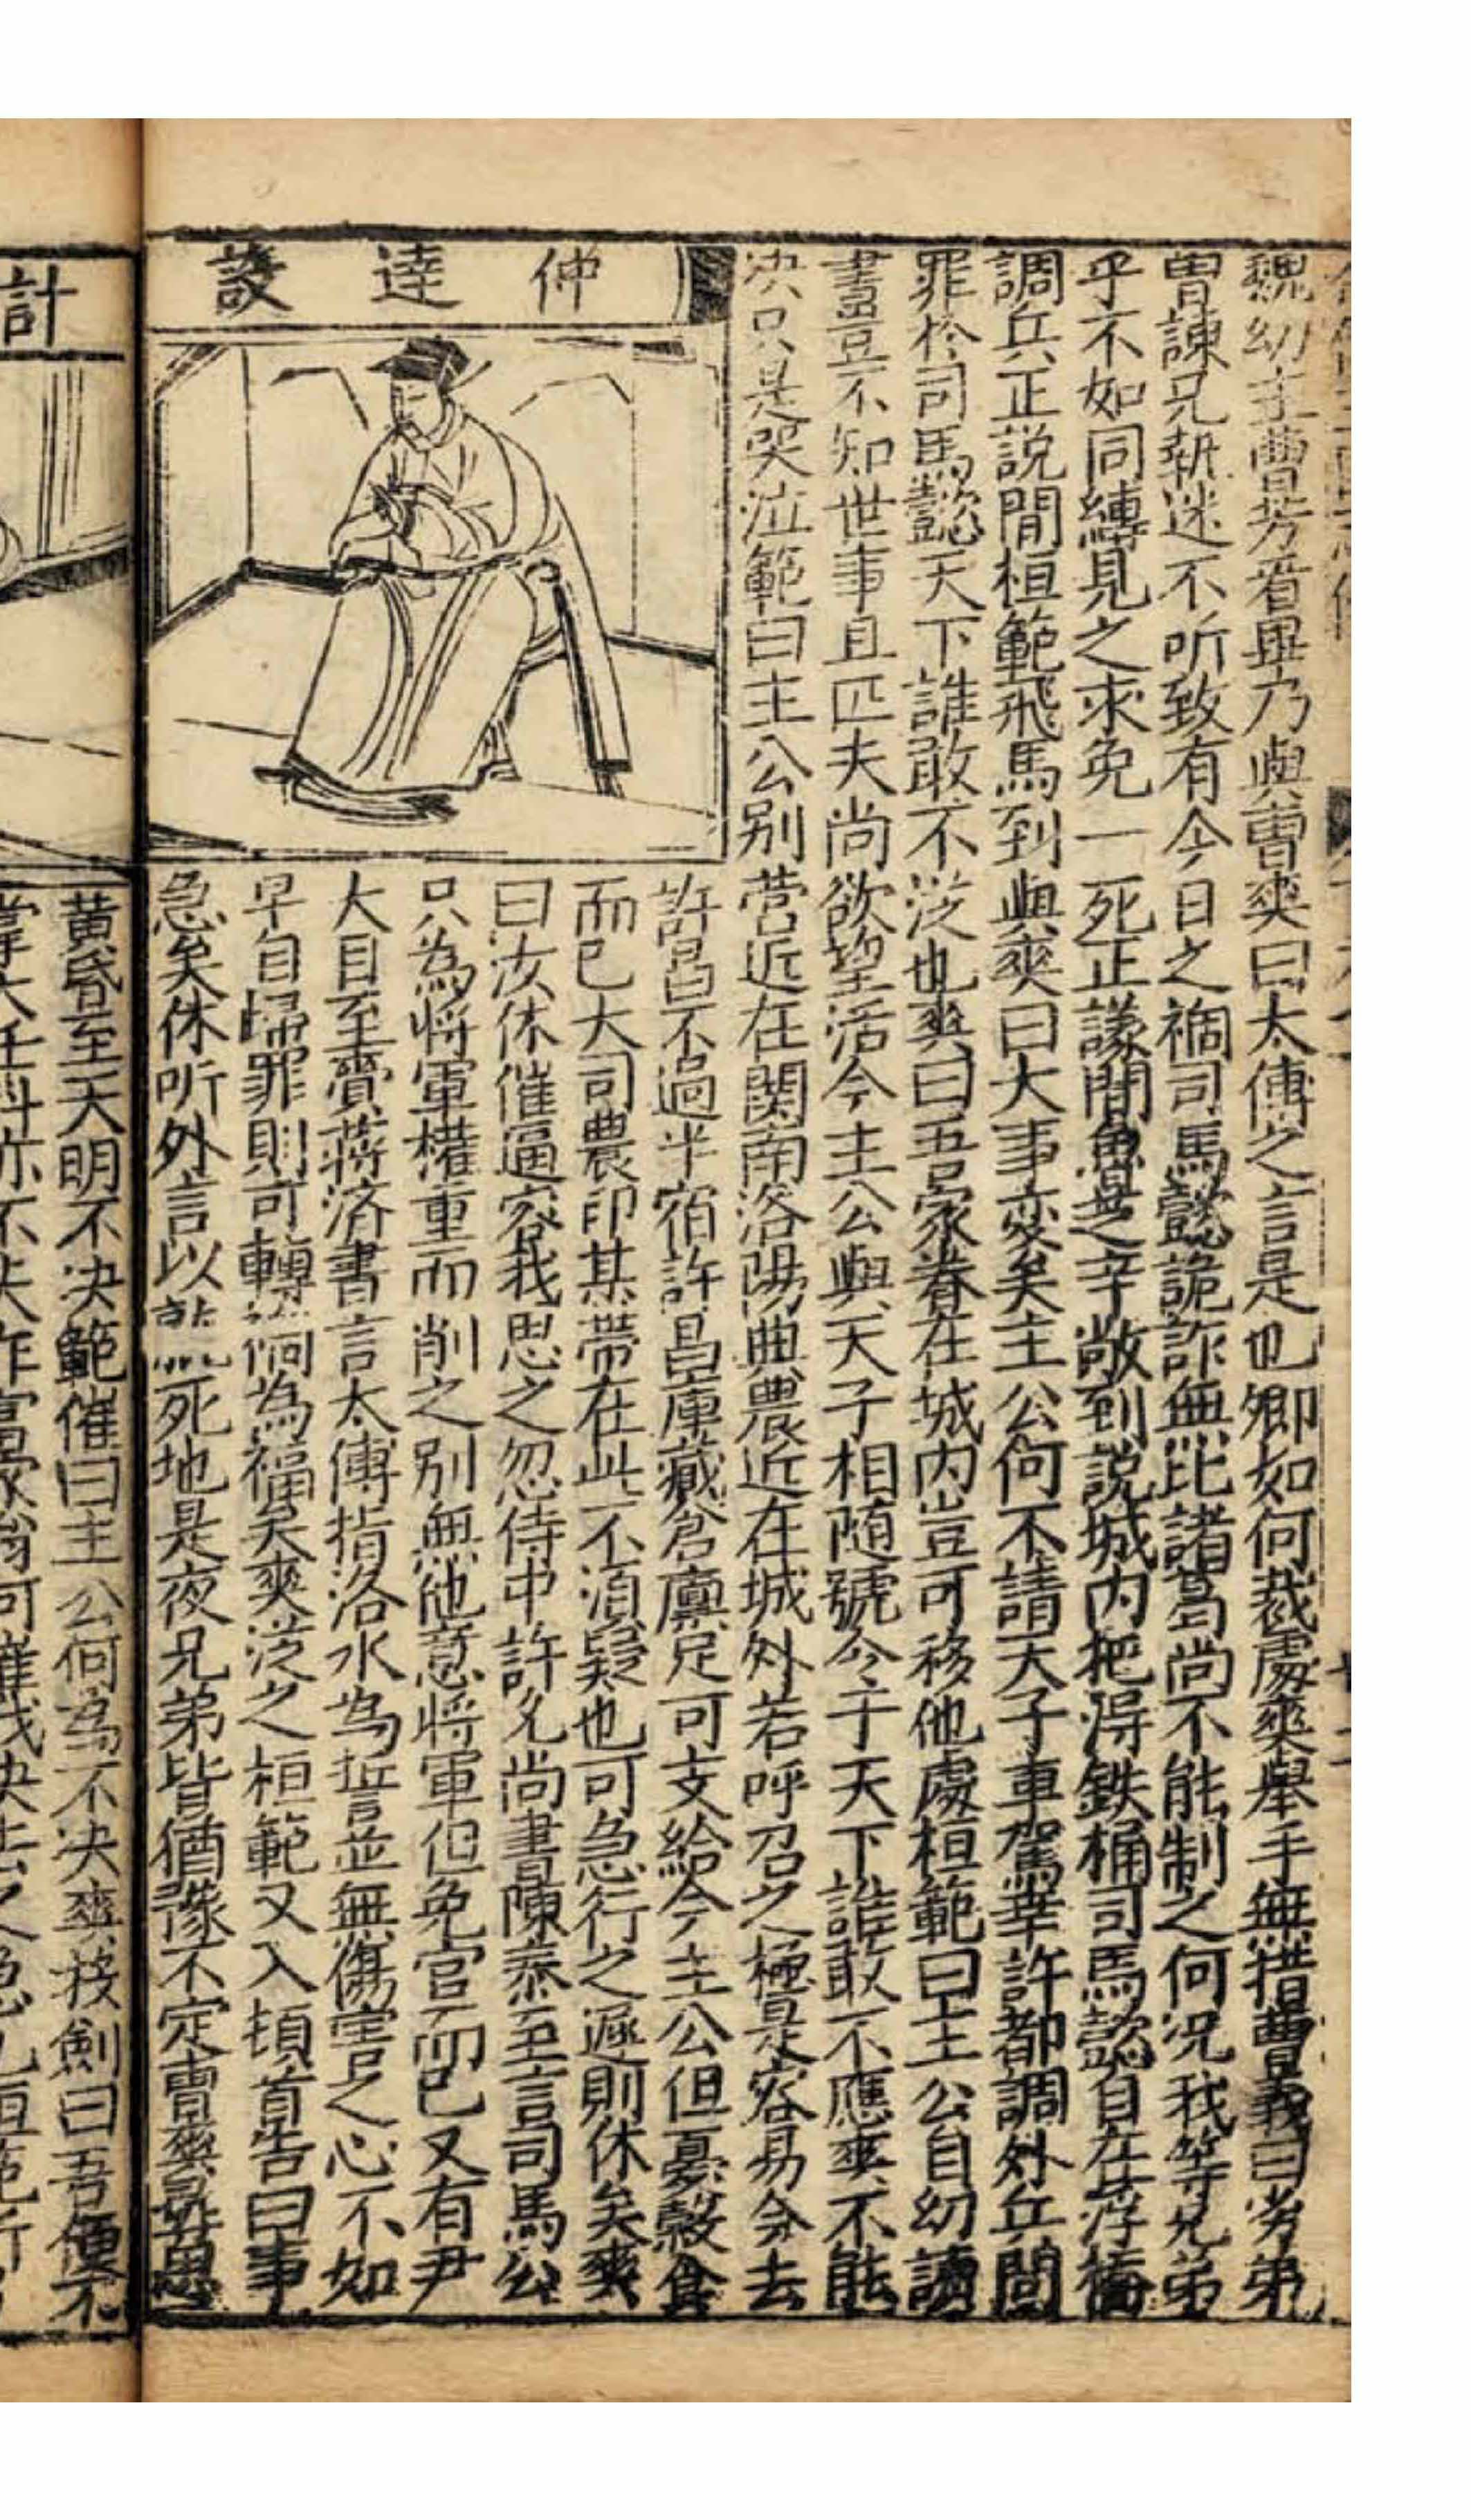 魏幼主曹芳看畢乃與曹爽曰太傅之言是也卿如何裁處爽舉手無措曹義曰劣弟
曽諫兄執迷不听致有今日之禍司馬懿詭詐無比諸葛尚不能制之何况我等兄弟
乎不如同縛見之求免一死正議間魯芝辛敞到説城内把淂鉄桶司馬懿自在浮橋
調兵正説間桓範飛馬到與爽曰大事变矣主公何不請天子車駕幸許都調外兵問
罪於司馬懿天下誰敢不從也爽曰吾家眷在城内豈可移他處桓範曰主公自幼讀
書豈不知世事且匹夫尚欲望活今主公與天子相随號令于天下誰敢不應爽不能
决只是哭泣範曰主公别營近在関南洛陽典農近在城外若呼召之極是容易今去
許昌不過半宿許昌庫藏倉廪足可支給今主公但憂穀食
而已大司農印某帶在此不湏疑也可急行之遲則休矣爽
曰汝休催逼容我思之忽侍中許允尚書陳泰至言司馬公
只為将軍權重而削之别無他意将軍但免官而已又有尹
大目至賫蒋済書言太傅指洛水為誓並無傷害之心不如
早自歸罪則可轉禍為福矣爽從之桓範又入頓首告曰事
急矣休听外言以就死地是夜兄弟皆猶豫不定曹爽尋思
仲達設
計
黄昏至天明不决範催曰主公何為不决爽投劍曰吾便不